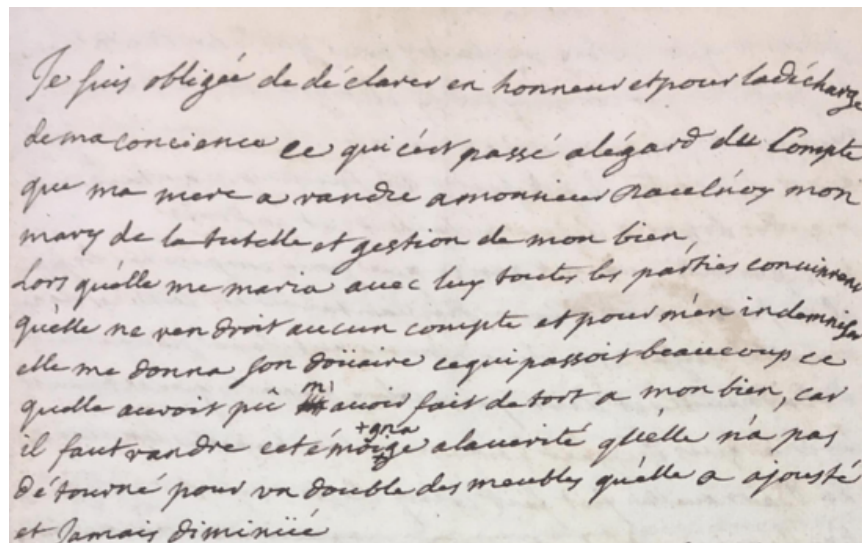 Je suis obligée de déclarer en honneur et pour la décharge
de ma concience ce qui c'est passé a légard du Compte
que ma mere a randre a monsieur mon
mary de la tutelle et gestion de mon bien,
Lors quélle me maria avec luy toutes les parties convinrent
qu'elle ne rendroit aucun compte et pour m'en indemniser
elle me donna son doüaire ce qui passoit beaucoup ce
quelle auroit pû m'avoir fait de tort a mon bien, car
il faut randre ce témoigna a la verité qu'elle n'a pas
détourné pour un double des meubles qu'elle a ajousté
et Jamais diminüé